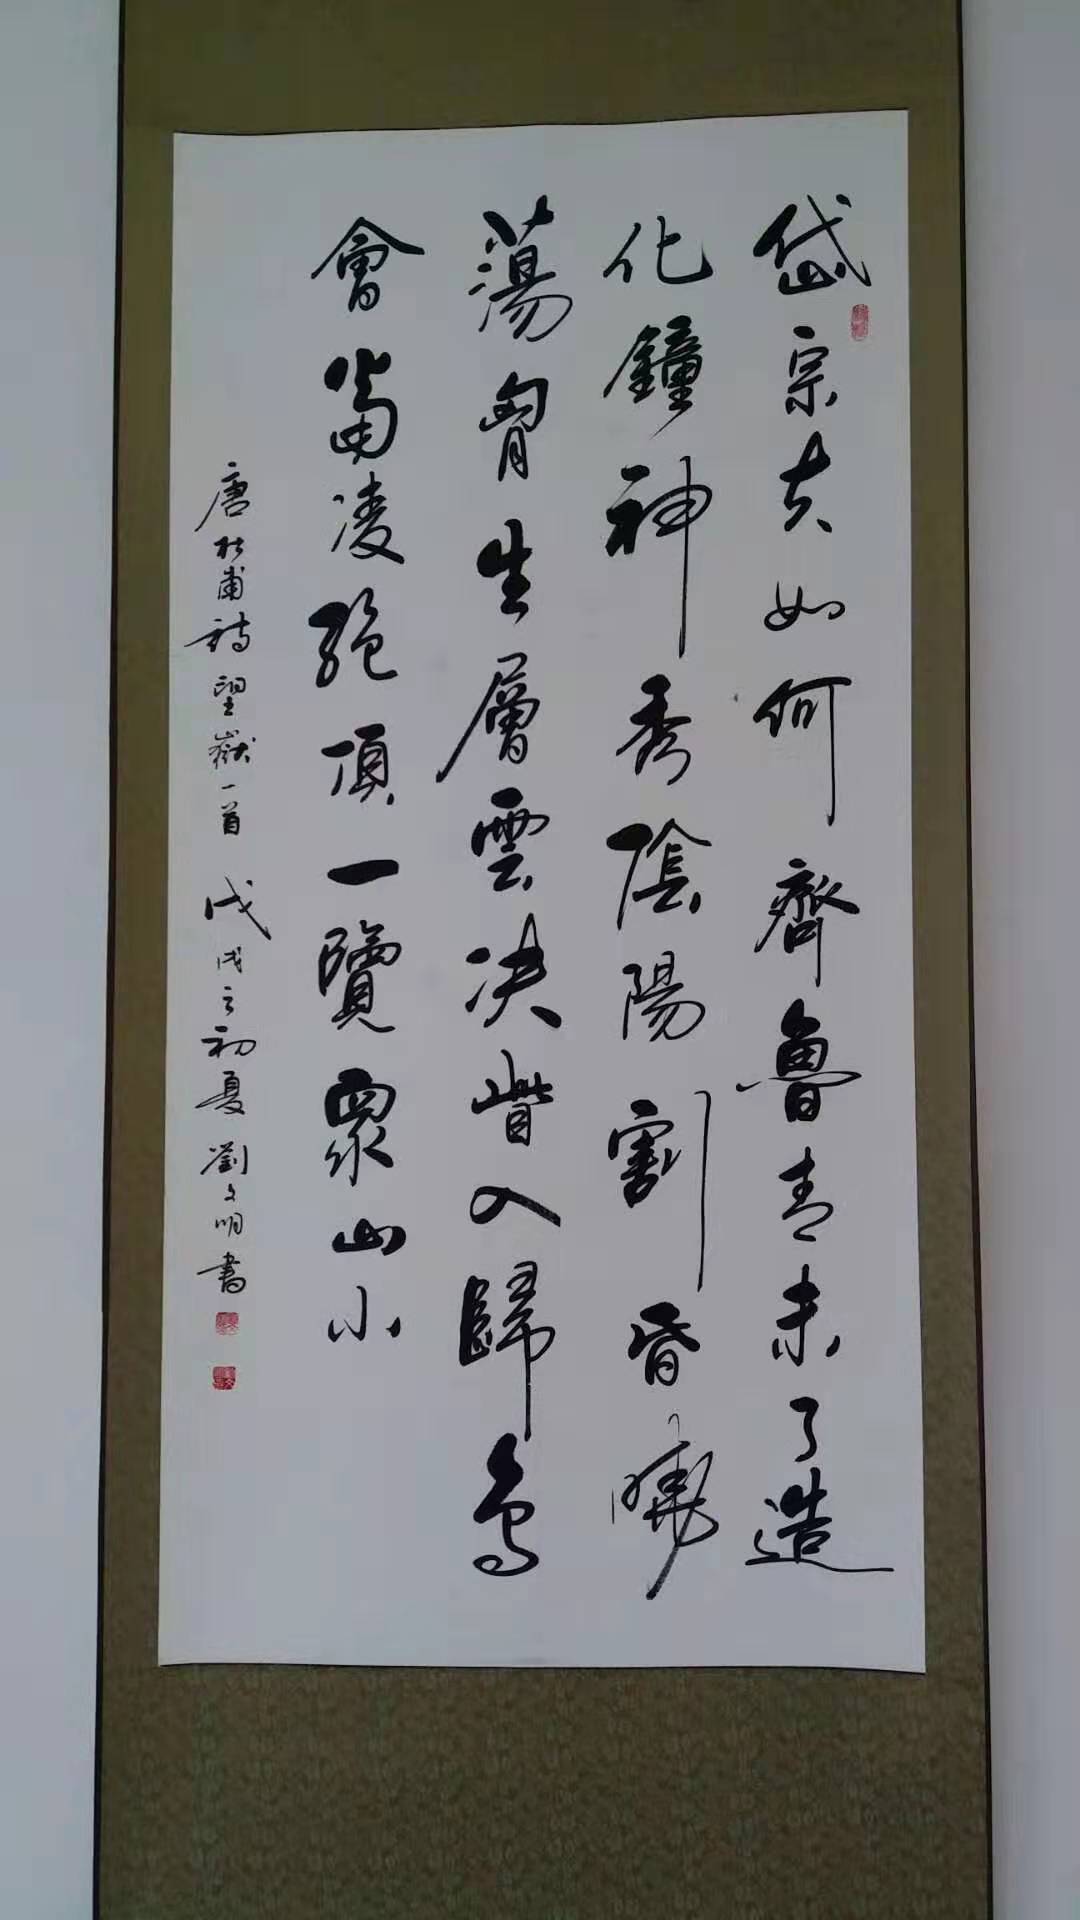 岱宗夫如何齊魯青未了造
化鐘神秀陰陽割昏曉
蕩胷生層雲决眥入歸鳥
會當凌絕頂一覽眾山小
唐杜甫詩望嶽一首 戊戌之初夏劉文明書